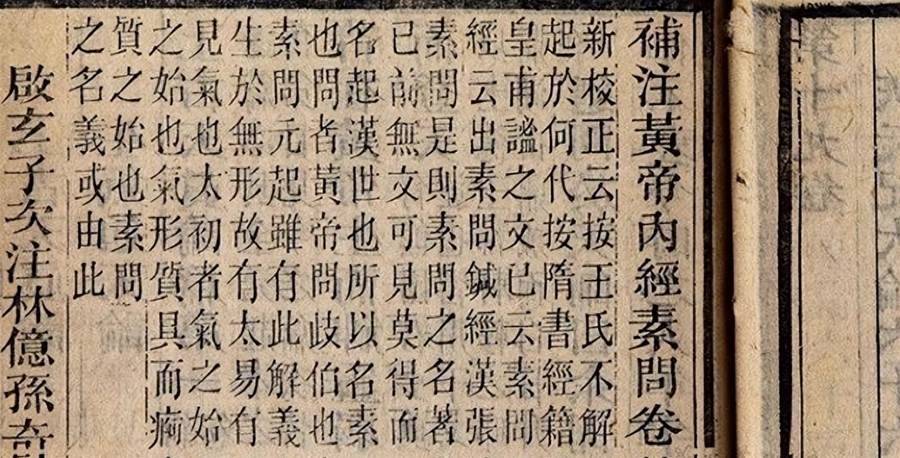 補注黃帝內經素問卷
新校正云按王氏不解
起於何代按隋書經籍
皇甫謐之文已云素問
經云出素問鍼經漢張
素問是則素問之名著
已前無文可見莫得而
名起漢世也所以名素
也問者黃帝問歧伯也
素問元起雖有此解義
生於無形故有太易有
見氣也太初者氣之始
之始也氣形質具而痾
質之始也素問
之名義或由此
啟玄子次注林億孫奇